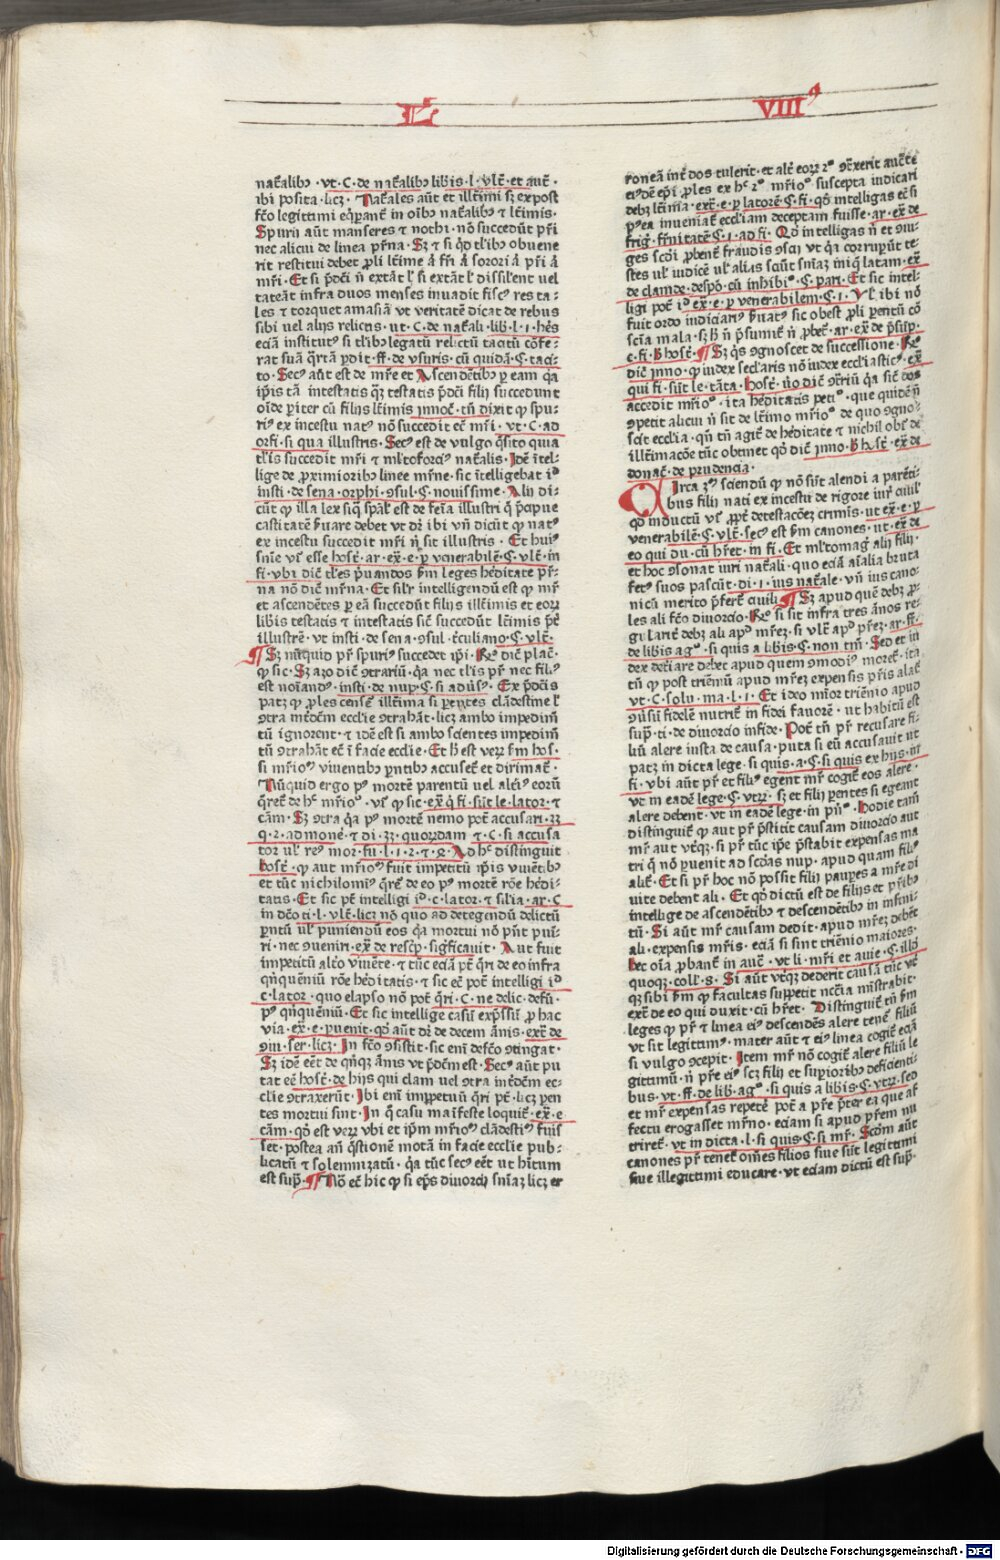 L VIII
nat̄alibꝫ · vt · C · de nat̄alibꝫ libis · l · vlt̄ · et aut̄ ·
ibi posita · licꝫ · Nat̄ales aūt et ill̄timi sꝫ ex post
fc̄o legittimi eq̄ꝑant̄ in oībꝫ nat̄alibꝫ ⁊ lt̄imis ·
Spurii aūt manseres ⁊ nothi · nō succedūt pr̄i
nec alicui de linea pr̄na · Sꝫ ⁊ si qd̄ tl̄ibꝫ obuene
rit restitui debet ꝓli lt̄ime a fr̄i a sorori a pr̄i a
mr̄i · Et si p̄dc̄i n̄ extāt l̄ si extāt l̄ dissīlent uel
tateāt infra duos menses inuadit fiscꝰ res ta-
les ⁊ torquet amasiā vt veritatē dicat de rebus
sibi uel alijs relictis · ut · C · de nat̄ali · lib · l · 1 · hēs
eciā institutꝰ si tl̄ibꝫ legatū relictū tacitū cōfer-
rat suā q̄rtā ꝑdit · ff · de vsuris · cū quidā · C · taci-
to · Secꝰ aūt est de mr̄e et Ascendētibꝫ ꝑ eam q̄a
ip̄is tā intestatis qꝫ testatis p̄dc̄i filij succedunt
oīde ꝑiter cū filijs lt̄imis ꝑnnoc̄ · tn̄ dixit ꝙ spu-
riꝰ ex incestu natꝰ nō succedit ec̄ mr̄i · vt · C · ad
orfi · si qua illustris · Secꝰ est de vulgo q̄sito qua
tl̄is succedit mr̄i ⁊ ml̄toforciꝰ nat̄alis · Idē ītel-
lige de ꝓximioribꝫ linee mr̄ne · sic ītelligebat id
insti · de sena · orphi · ꝯsul · C · nouissime · Alij di-
cūt ꝙ illa lex siqꝫ sp̄al̄ est de feīa illustri q̄ p̄cipue
castitatē ẜuare debet vt dr̄ ibi vn̄ dicūt ꝙ natꝰ
ex incestu succedit mr̄i n̄ sit illustris · Et huiꝰ
sn̄ie vr̄ esse host̄ · ar · ex̄ · e · ꝑ venerabilē · C · vlt̄ · in
fi · vbi dic̄ tl̄es p̄uandos ẜm leges hēditate pr̄-
na nō dic̄ mr̄na · Et sil̄r intelligendū est ꝙ mr̄
et ascendētes ꝑ eā succedūt filijs ill̄timis et eoꝝ
libis testatis ⁊ intestatis sic̄ succedūt lt̄imis p̄t
illustrē · vt insti · de sena · ꝯsul · t̄culiano · C · vlt̄ ·
¶ Sꝫ nūquid pr̄ spuriꝰ succedet ip̄i · Rn̄ dic̄ plac̄ ·
ꝙ sic · Sꝫ azo dic̄ ꝯtrariū · q̄a nec tl̄is pr̄ nec filiꝰ
est noīandꝰ · insti · de nup · C · si aduꝰ · Ex p̄dc̄is
patꝫ ꝙ ꝓles censet̄ ill̄tima si ꝑentes clādestine l̄
ꝯtra int̄dcm̄ ecclie ꝯtrahāt · licꝫ ambo impedim̄
tū ignorent · ⁊ idē est si ambo scientes impedim̄
tū ꝯtrahāt ec̄ ī facie ecclie · Et hꝰ est verꝫ ẜm hos ·
si mr̄ioꝫ viuentibꝫ ꝑntibꝫ accuset̄ et dirimat̄ ·
Nūquid ergo pꝰ mortē parentū uel alt̄iꝰ eorū
q̄ret̄ de hꝰ mr̄ioꝫ · vr̄ ꝙ sic · ex̄ q̄ fi · sūt le · lator · ⁊
cām · Sꝫ ꝯtra q̄a pꝰ mortē nemo pot̄ accusari · 22
q · 2 · admonē · ⁊ di · 22 · quorūdam · ⁊ · C · si accusa
tor ul̄ reꝰ mor · fu · l · 1 · 2 · ⁊ · 8 · Ad hꝰ distinguit
host̄ · ꝙ aut mr̄ioꝫ fuit impetitū ip̄is viuētibꝫ
et tūc nichilomiꝰ q̄ret̄ de eo pꝰ mortē rōe hēdi-
tatis · Et sic pt̄ intelligi id · c · lator · ⁊ silia · ar · C
in dc̄o ti · l · vlt̄ · licꝫ nō quo ad detegendū delictū
ꝑntū ul̄ puniendū eos q̄a mortui nō pn̄t puni-
ri · nec ꝯueniri · ex̄ de resc̄p · sigficauit · Aut fuit
impetitū alt̄o viuēte · ⁊ tūc eciā pt̄ q̄ri de eo infra
qn̄quēniū rōe hēditatis · ⁊ sic ec̄ pot̄ intelligi id
c · lator · quo elapso nō pot̄ q̄ri · C · ne de sta · defū ·
pꝰ qn̄quēniū · Et sic intellige casū exp̄ssū ꝓ hac
via · ex̄ · e · puenit · qd̄ aūt dr̄ de decem ānis · ex̄ de
ꝯiu · ser · licꝫ · In fc̄o ꝯsistit · sic enī defc̄o ꝯtingat ·
Sꝫ idē eēt de qn̄qꝫ ānis vt p̄dcm̄ est · Secꝰ aūt pu
tat ec̄ host̄ · de hijs qui clam uel ꝯtra int̄dcm̄ ec-
clie ꝯtraxerūt · Ibi enī imꝑpetuū q̄ri pt̄ · licꝫ ꝑen
tes mortui sint · In q̄ casu maīfeste loquit̄ · ex̄ · e
cām · qd̄ est verꝫ vbi et ip̄m mr̄ioꝫ clādestiꝰ fuis
set · postea an̄ q̄stionē motā in facie ecclie pub-
licatū ⁊ solemnizatū · q̄a tūc secꝰ eēt ut hītum
est sup̄ · ¶ Nō ec̄ hic ꝙ si ep̄s diuorcij sn̄iaꝫ licꝫ er
roneā int̄ dos tulerit · et alt̄ eoꝝ 2º ꝯtxerit auct̄e
eiꝰdē ep̄i ꝓles ex hꝰ 2º mr̄io suscepta iudicari
debꝫ lt̄ima · ex̄ · e · ꝑ latorē · C · fi · qd̄ intelligas ec̄ si
pꝰea inueniat̄ eccliam deceptam fuisse · ar · ex̄ de
frig · fr̄nitatē · C · 1 · ad fi · Qd̄ intelligas n̄ et ꝯiu-
ges scd̄i ꝓbent̄ fraudis ꝯscij vt q̄a corruꝑūt te-
stes ul̄ iudicē ul̄ alias sciūt sn̄iaꝫ iniq̄ latam · ex̄
de clande · despō · cū inhibiꝰ · C · pari · Et sic intel-
ligi pot̄ id ex̄ · e · ꝑ venerabilem · C · 1 · Vl̄ ibi nō
fuit ordo iudiciariꝰ ẜuatꝰ sic obest ꝓli ꝑentū cō
scīa mala · sꝫ hꝰ n̄ p̄sumit̄ n̄ ꝓbet̄ · ar · ex̄ de p̄sūp ·
c · fi · hꝰ host̄ · ¶ Sꝫ q̄s ꝯgnoscet de successione · Rn̄
dic̄ ꝑnno · ꝙ iudex sec̄laris nō iudex eccl̄iasticꝰ · ex̄
qui fi · sūt le · t̄ata · host̄ · ūo dic̄ ꝯtriū q̄a sic̄ dos
accedit mr̄ioꝫ · ita hēditatis petiꝰ · que quidē n̄
ꝯpetit alicui n̄ sit de lt̄imo mr̄ioꝫ de quo ꝯgno-
scit eccl̄ia · qn̄ tn̄ agit̄ de hēditate ⁊ nichil obꝰ de
ill̄timacōe tūc obtinet qd̄ dic̄ ꝑnno · hꝰ host̄ · ex̄ de
donat̄ · de prudencia ·
Circa 3ᵐ sciendū ꝙ nō sūt alendi a parēti-
bus filij nati ex incestu de rigore iurꝰ ciuil̄
qd̄ inductū vr̄ ꝓpt̄ detestacōeꝫ crimīs · ut ex̄ · e · ꝑ
venerabilē · C · vlt̄ · secꝰ est ẜm canones · ut · ex̄ de
eo qui du · cū hr̄et · in fi · Et ml̄tomagꝰ alij filij ·
et hoc ꝯsonat iuri nat̄ali · quo eciā aīalia bruta
fetꝰ suos pascūt · di · 1 · ius nat̄ale · vn̄ ius cano-
nicū merito p̄fert̄ ciuili ¶ Sꝫ apud quē debꝫ ꝓ-
les ali fc̄o diuorcio · Rn̄ si sit infra tres ānos re-
gularit̄ debꝫ ali apꝰ mr̄eꝫ · si vlt̄ apꝰ pr̄eꝫ · ar · ff ·
de libis agꝰ · si quis a libis · C · non tm̄ · Sed et iu
dex dc̄tiare debet apud quem ꝯmodiꝰ moret̄ · ita
tn̄ ꝙ post trieniū apud mr̄eꝫ expensis pr̄is alat̄
vt · C · solu · ma · l · 1 · Et ideo miōr triēnio apud
ꝯiūsū fidelē nutrit̄ in fidei fauorē · ut habitū est
sup̄ · ti · de diuorcio infide · Pot̄ tn̄ pr̄ recusare fi-
liū alere iusta de causa · puta si eū accusauit ut
patꝫ in dicta lege · si quis · a · C · si quis ex hijs · in
fi · vbi aūt pr̄ et filiꝰ egent mr̄ cogit̄ eos alere ·
vt in eadē lege · C · vtꝝ · sꝫ et filij ꝑentes si egeant
alere debent · vt in eadē lege · in pn̄ · Hodie tam̄
distinguit̄ ꝙ aut pr̄ p̄stitit causam diuorcio aut
mr̄ aut vt̄qꝫ · si pr̄ tūc ip̄e p̄stabit expensas ma
tri q̄ nō ꝑuenit ad scd̄as nup · apud quam filiꝰ
alit̄ · Et si pr̄ hoc nō possit filij pauꝑes a mr̄e di
uite debent ali · Et qd̄ dictū est de filijs et pr̄ibꝫ
intellige de ascendētibꝫ ⁊ descendētibꝫ in infini-
tū · Si aūt mr̄ causam dedit · apud mr̄eꝫ debet
ali · expensis mr̄is · eciā si sint triēnio maiores ·
hec oīa ꝓbant̄ in aut̄ · vt li · mr̄i et auie · C · illd̄
quoqꝫ · coll̄ · 8 · Si aūt vt̄qꝫ dederit causā tūc vt̄
qꝫ sibi ẜm ꝙ facultas suppetit nccīa mīstrabit ·
ex̄ de eo qui duxit · cū hr̄et · Distinguit̄ tn̄ ẜm
leges ꝙ pr̄ ⁊ linea eiꝰ descendēs alere tenet̄ filiū
vt sit legittimꝰ · mater aūt ⁊ eiꝰ linea cogit̄ eciā
si vulgo ꝯcepit · Item mr̄ nō cogit̄ alere filiū le
gittimū · n̄ pr̄e eiꝰ scꝫ filij et suꝑioribꝫ deficienti-
bus · vt · ff · de lib · agꝰ · si quis a libis · C · vtꝝ · sed
et mr̄ expensas repetet̄ pot̄ a pr̄e p̄ter ea que af
fectu erogasset mr̄no · eciam si apud pr̄em nu
triret̄ · vt in dicta · l · si quis · C · si mr̄ · Scd̄m aūt
canones pr̄ tenet̄ om̄es filios siue sūt legittimi
siue illegittimi educare · vt eciam dictū est sup̄ ·
Digitalisierung gefördert durch die Deutsche Forschungsgemeinschaft - DFG